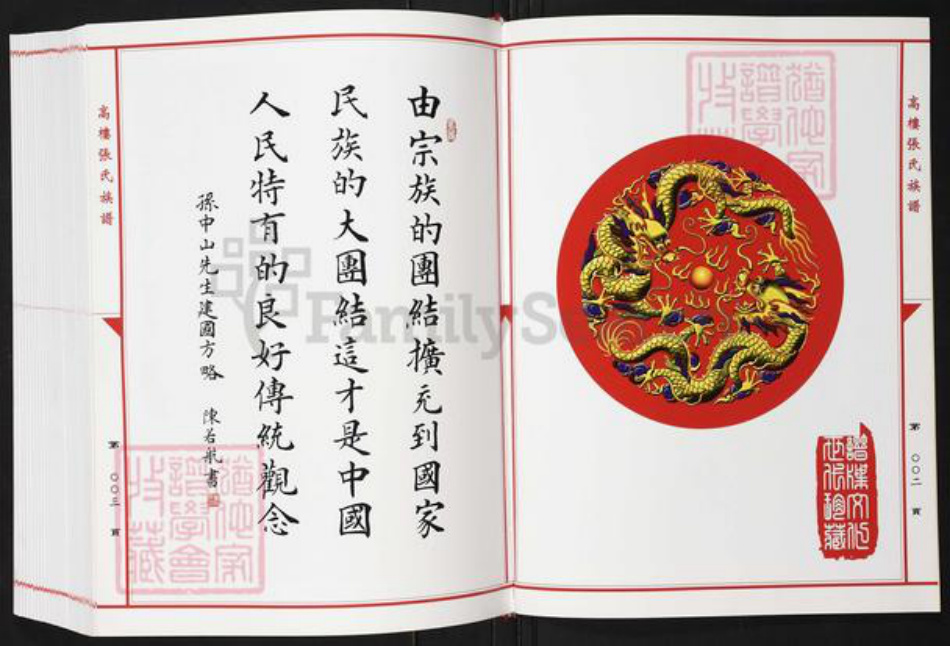 高樓張氏族譜
第〇〇二頁
譜牒文化
世代珍藏
由宗族的團結擴充到國家
民族的大團結這才是中國
人民特有的良好傳統觀念
孫中山先生建國方略 陳若航書
高樓張氏族譜
第〇〇三頁
譜學會
收藏
FamilySe